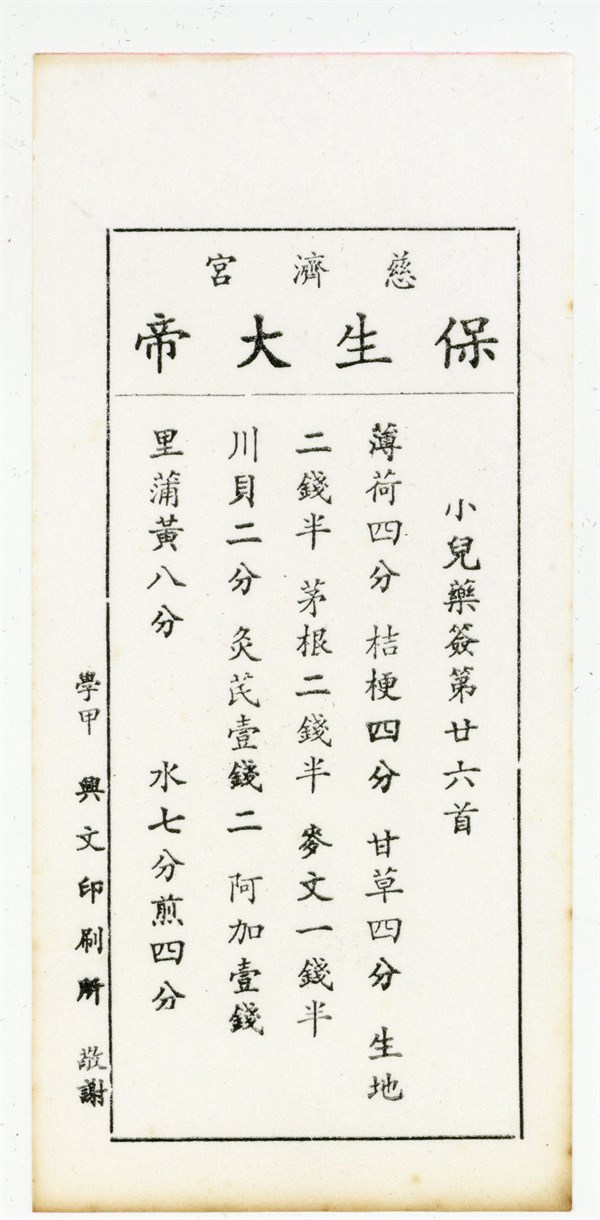 慈濟宮
保生大帝
小兒藥簽第廿六首
薄荷四分 桔梗四分 甘草四分 生地
二錢半 茅根二錢半 麥文一錢半
川貝二分 灸芪壹錢二 阿加壹錢
里蒲黃八分 水七分煎四分
學甲 興文印刷所 敬謝